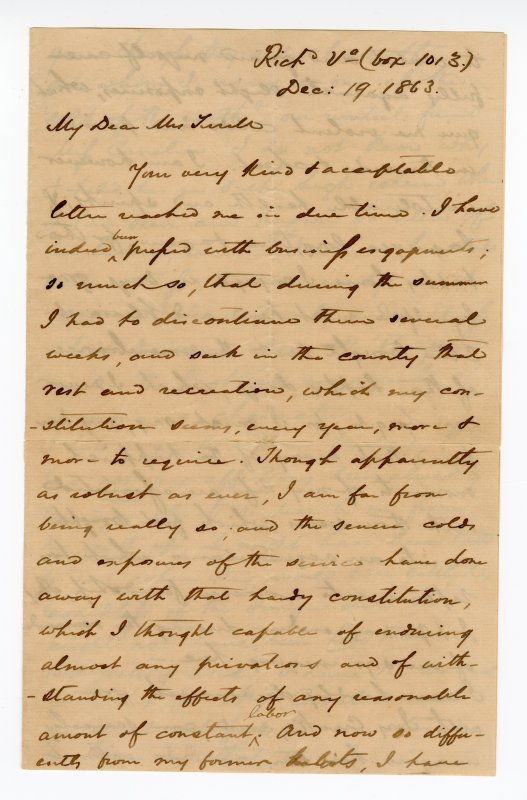 Richd Va (box 1013.)
Dec: 19, 1863.
My Dear Mrs
Your very kind & acceptable
letter reached me in due time. I have
indeed been pressed with business engagements;
so much so, that during the summer
I had to discontinue them several
weeks, and seek in the county that
rest and recreation, which my con-
-stitution seems, every year, more &
more to require. Though apparently
as robust as ever, I am far from
being really so; and the severe colds
and exposures of the service have done
away with that hardy constitution,
which I thought capable of enduring
almost any privations and of with-
-standing the effects of any reasonable
amont of constant labor. And now so differ-
ently from my former habits, I have